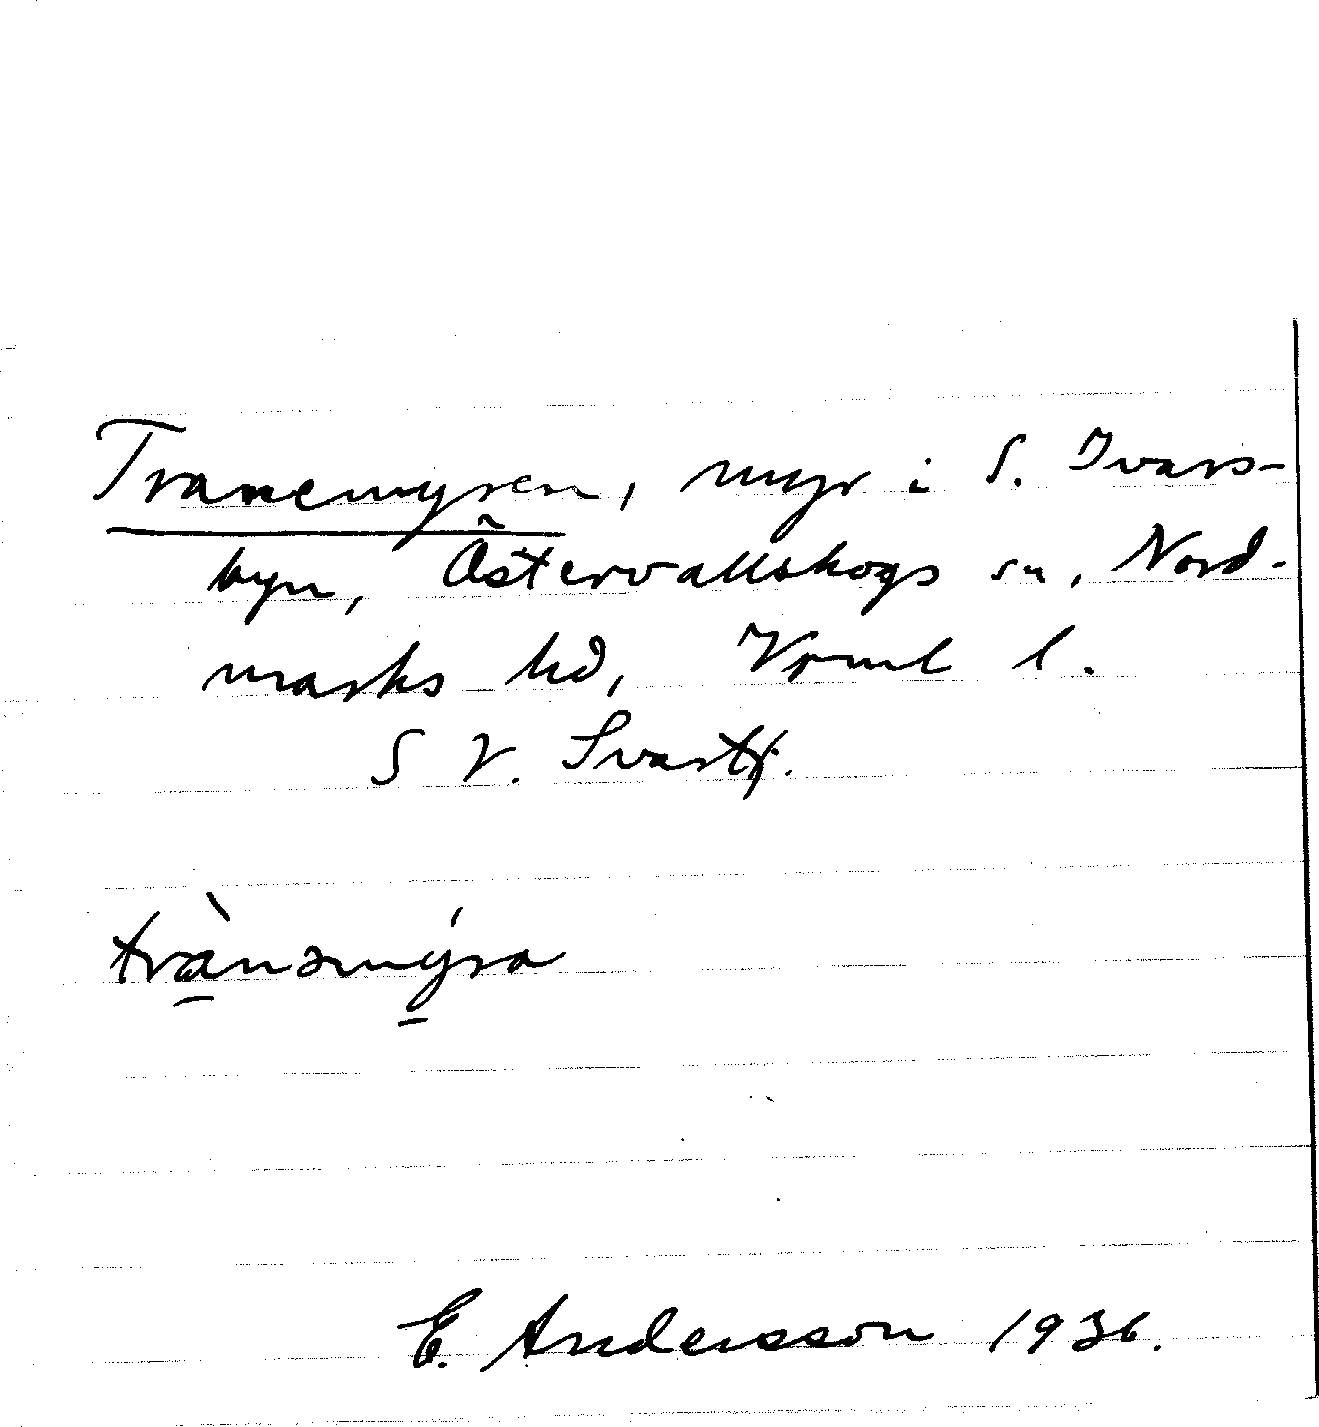 Tranemyren, myr i S. Ivars-
byn, Östervallskogs sn, Nord-
marks hd, Vrml l.
S V. Svartt.
trànəmýra
E. Andersson 1936.